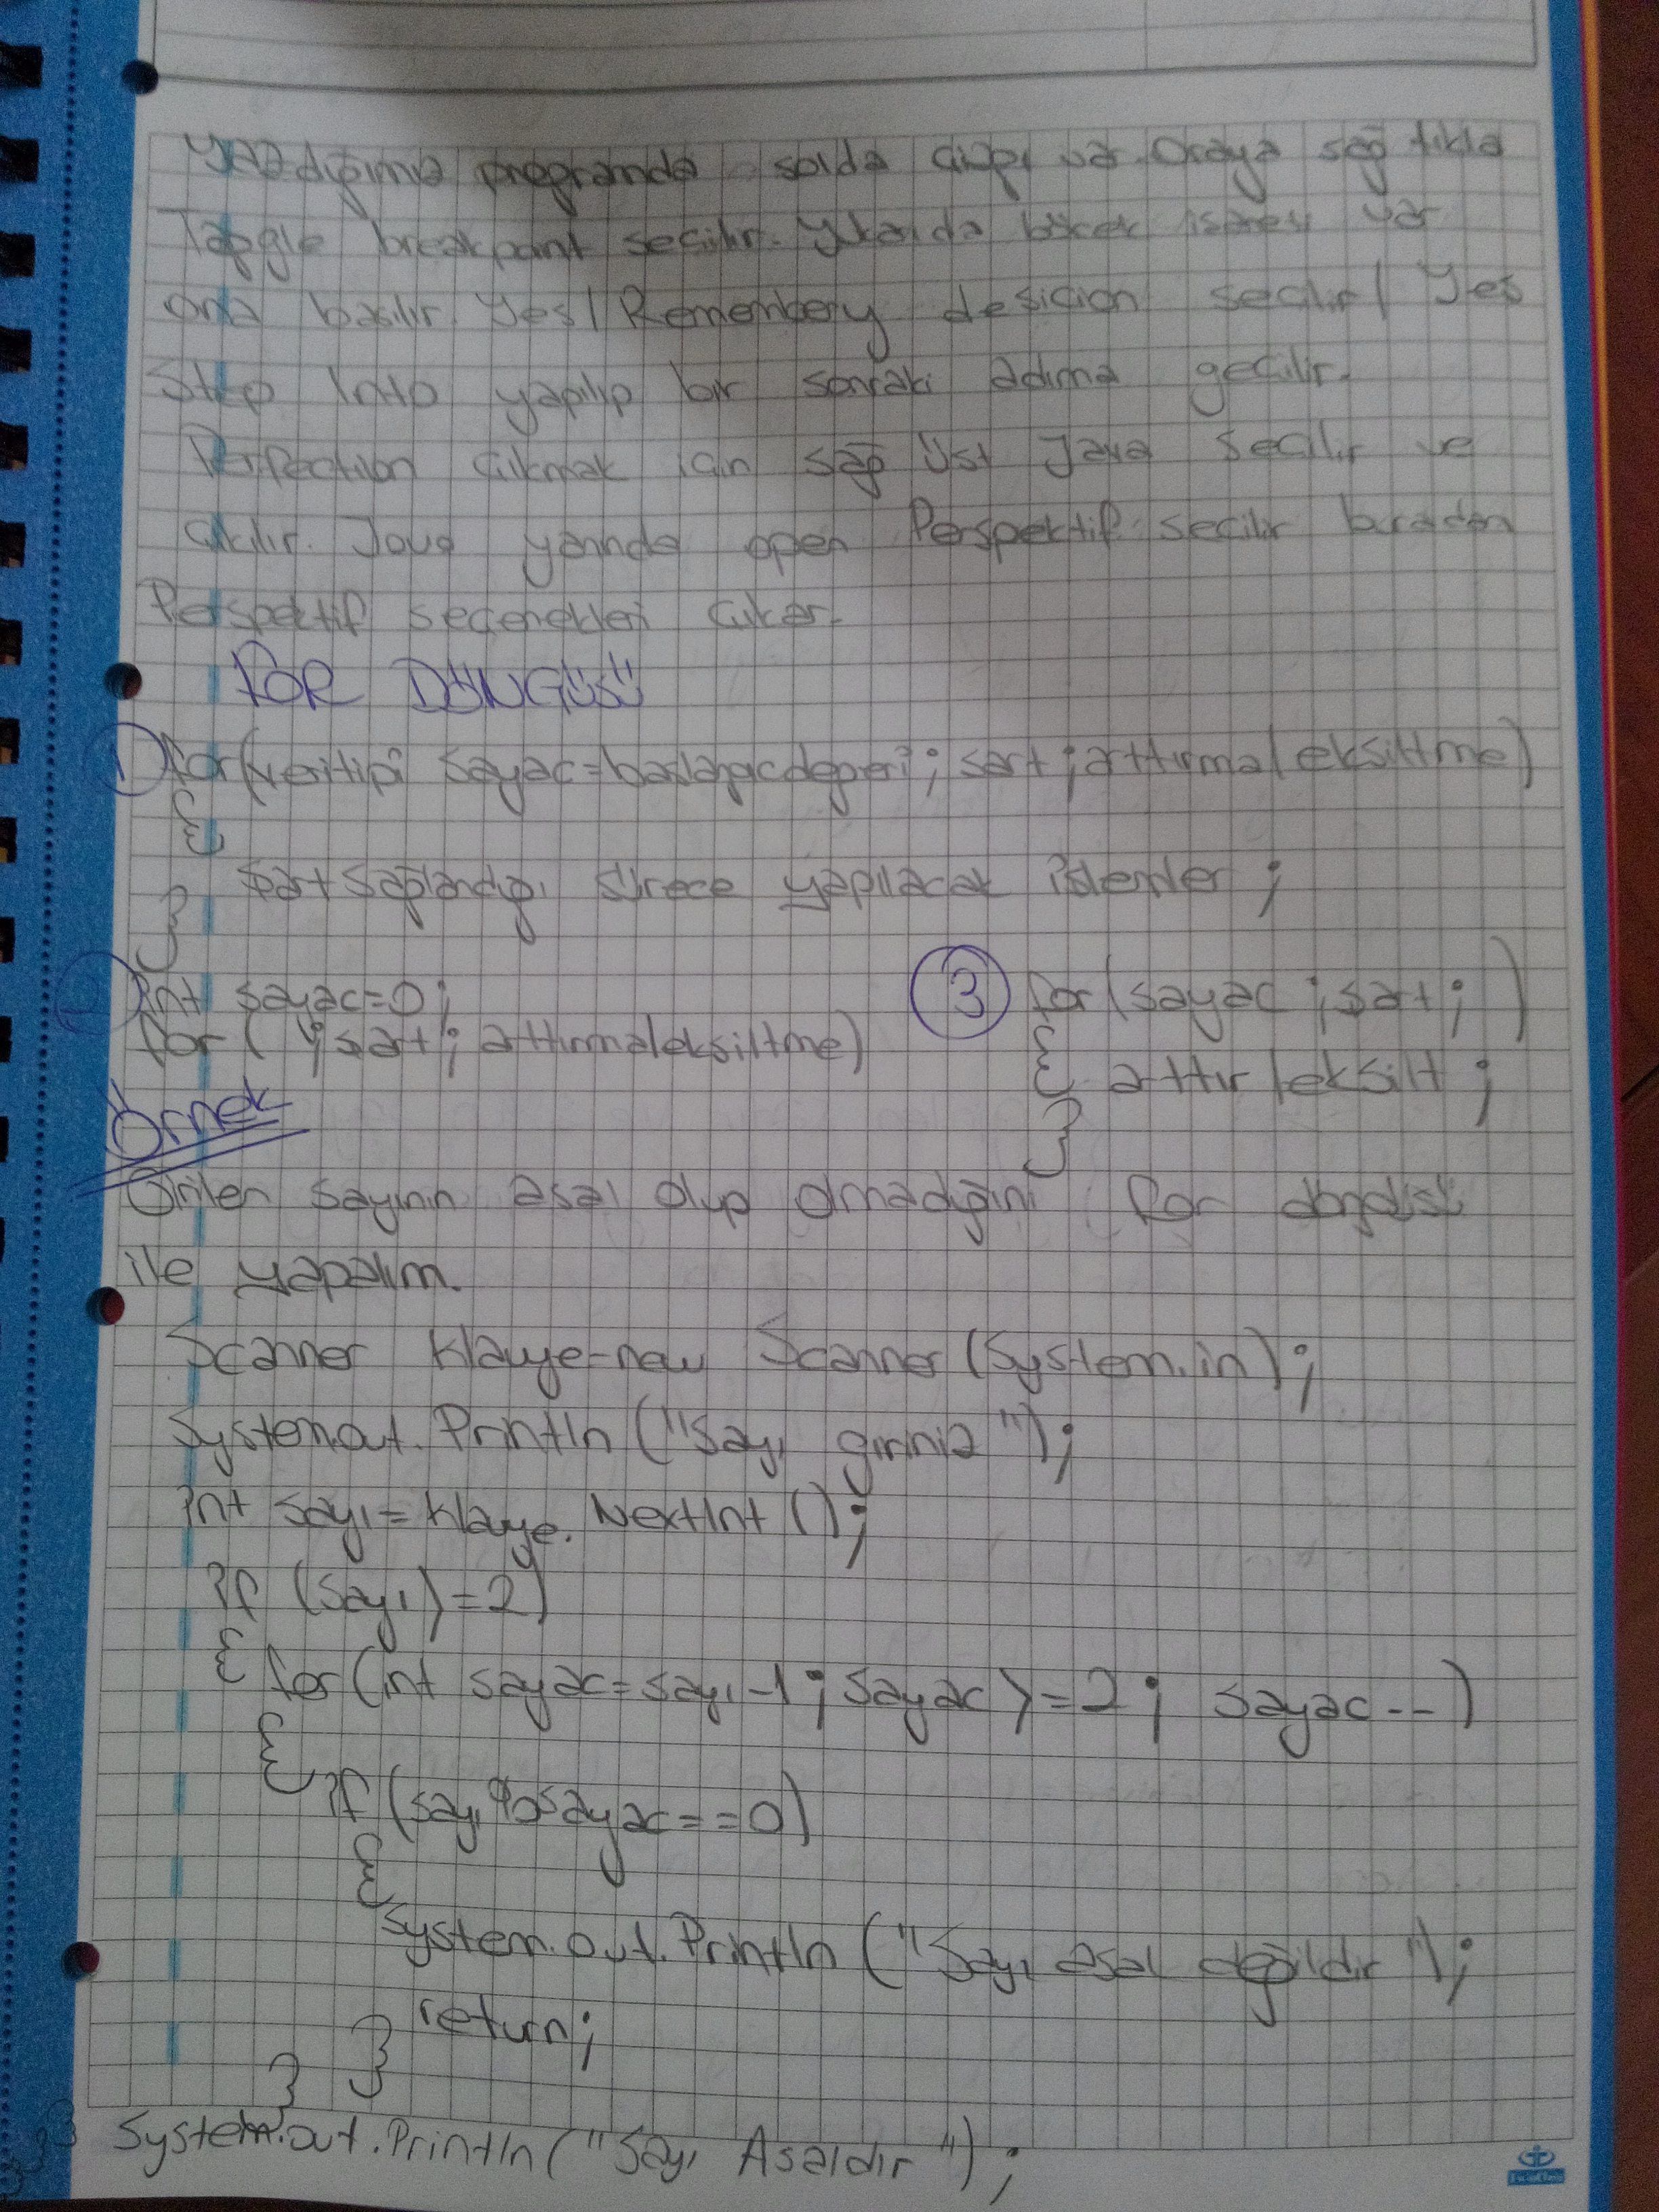 Yazdığımız programda solda çizgi var. Oraya sağ tıkla
Toggle breakpoint seçilir. Yukarıda böcek işareti var
ona basılır. Yes/Remembery desicion seçilir/Yes
Step Into yapılıp bir sonraki adıma geçilir.
Perfection çıkmak için sağ üst Java seçilir ve
çıkılır. Java yanında open Perspektif seçilir buradan
Perspektif seçenekleri çıkar.
FOR DÖNGÜSÜ
1 for(veritipi sayac=baslangıcdegeri; sart; arttırma/eksiltme)
{
Şart sağlandığı sürece yapılacak işlemler;
}
2 int sayac=0;
for( ; sart; arttırma/eksiltme)
3 for(sayac ; sart; )
{ attır/eksilt;
}
Örnek
Girilen sayının asal olup olmadığını for döngüsü
ile yapalım.
Scanner klavye=new Scanner(System.in);
System.out.Println("Sayı giriniz");
int sayı=klavye.NextInt();
if (sayı>=2)
{ for(int sayac=sayı-1; sayac>=2; sayac--)
{ if(sayı%sayac==0)
{
System.out.Println("Sayı asal değildir");
return;
}
}
System.out.Println("Sayı Asaldır");